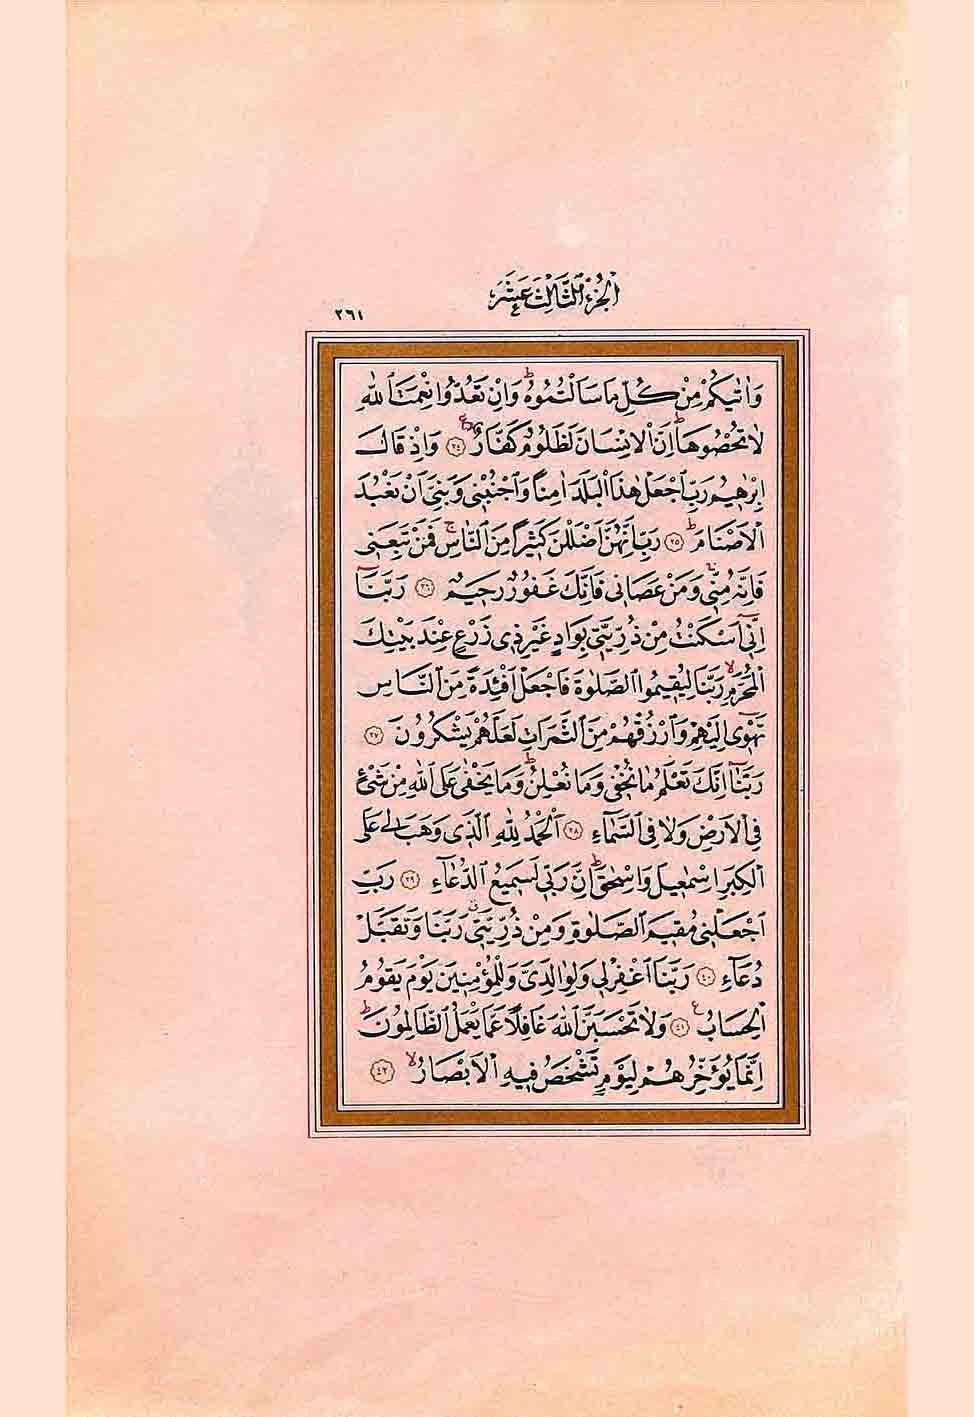 اَلْجُزْءُ الثَّالِثَ عَشَرَ
٢٦١
وَاٰتٰيكُمْ مِنْ كُلِّ مَا سَاَلْتُمُوهُۜ وَاِنْ تَعُدُّوا نِعْمَتَ اللّٰهِ
لَا تُحْصُوهَاۜ اِنَّ الْاِنْسَانَ لَظَلُومٌ كَفَّارٌ۟ ﴿٣٤﴾ وَاِذْ قَالَ
اِبْرٰهٖيمُ رَبِّ اجْعَلْ هٰذَا الْبَلَدَ اٰمِنًا وَاجْنُبْنٖى وَبَنِىَّ اَنْ نَعْبُدَ
الْاَصْنَامَۜ ﴿٣٥﴾ رَبِّ اِنَّهُنَّ اَضْلَلْنَ كَثٖيرًا مِنَ النَّاسِۚ فَمَنْ تَبِعَنٖى
فَاِنَّهُ مِنّٖىۚ وَمَنْ عَصَانٖى فَاِنَّكَ غَفُورٌ رَحٖيمٌ ﴿٣٦﴾ رَبَّنَٓا
اِنّٖٓى اَسْكَنْتُ مِنْ ذُرِّيَّتٖى بِوَادٍ غَيْرِ ذٖى زَرْعٍ عِنْدَ بَيْتِكَ
الْمُحَرَّمِۙ رَبَّنَا لِيُقٖيمُوا الصَّلٰوةَ فَاجْعَلْ اَفْئِدَةً مِنَ النَّاسِ
تَهْوٖٓى اِلَيْهِمْ وَارْزُقْهُمْ مِنَ الثَّمَرَاتِ لَعَلَّهُمْ يَشْكُرُونَ ﴿٣٧﴾
رَبَّنَٓا اِنَّكَ تَعْلَمُ مَا نُخْفٖى وَمَا نُعْلِنُۜ وَمَا يَخْفٰى عَلَى اللّٰهِ مِنْ شَىْءٍ
فِى الْاَرْضِ وَلَا فِى السَّمَٓاءِ ﴿٣٨﴾ اَلْحَمْدُ لِلّٰهِ الَّذٖى وَهَبَ لٖى عَلَى
الْكِبَرِ اِسْمٰعٖيلَ وَاِسْحٰقَۜ اِنَّ رَبّٖى لَسَمٖيعُ الدُّعَٓاءِ ﴿٣٩﴾ رَبِّ
اجْعَلْنٖى مُقٖيمَ الصَّلٰوةِ وَمِنْ ذُرِّيَّتٖىۗ رَبَّنَا وَتَقَبَّلْ
دُعَٓاءِ ﴿٤٠﴾ رَبَّنَا اغْفِرْ لٖى وَلِوَالِدَىَّ وَلِلْمُؤْمِنٖينَ يَوْمَ يَقُومُ
الْحِسَابُ۟ ﴿٤١﴾ وَلَا تَحْسَبَنَّ اللّٰهَ غَافِلًا عَمَّا يَعْمَلُ الظَّالِمُونَۜ
اِنَّمَا يُؤَخِّرُهُمْ لِيَوْمٍ تَشْخَصُ فٖيهِ الْاَبْصَارُۙ ﴿٤٢﴾